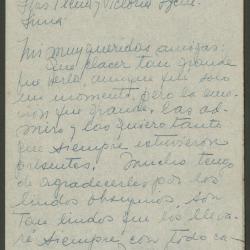 Srtas Elena y Victoria
Mis muy queridas amigas:
Que placer tan grande
fue verla aunque fue solo
un momento, pero la emo-
ción fue grande. Las ad-
miro y las quiero tanto
que siempre estuvieron
presentes. Mucho tengo
de agradecerles por los
lindos obsequios, son
tan lindos que los lleva-
ré siempre con todo ca-